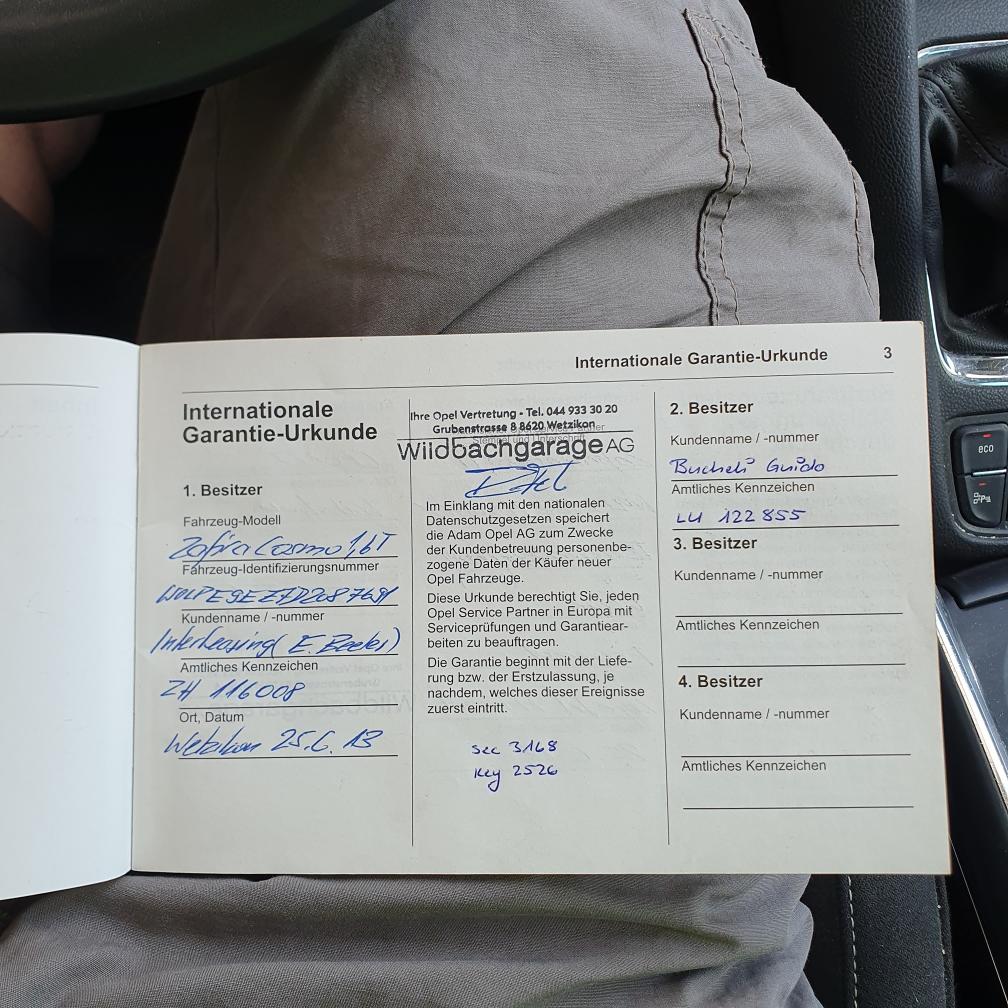 Internationale Garantie-Urkunde 3
Internationale
Garantie-Urkunde
1. Besitzer
Fahrzeug-Modell
Zafira Cosmo 1,6T
Fahrzeug-Identifizierungsnummer
Kundenname / -nummer
Interleasing (E. Beeler)
Amtliches Kennzeichen
ZH 116008
Ort, Datum
Wetzikon 25.6.13
Ihre Opel Vertretung - Tel. 044 933 30 20
Grubenstrasse 8 8620 Wetzikon
Stempel und Unterschrift
Wildbachgarage AG
Im Einklang mit den nationalen
Datenschutzgesetzen speichert
die Adam Opel AG zum Zwecke
der Kundenbetreuung personenbe-
zogene Daten der Käufer neuer
Opel Fahrzeuge.
Diese Urkunde berechtigt Sie, jeden
Opel Service Partner in Europa mit
Serviceprüfungen und Garantiear-
beiten zu beauftragen.
Die Garantie beginnt mit der Liefe-
rung bzw. der Erstzulassung, je
nachdem, welches dieser Ereignisse
zuerst eintritt.
Sec 3168
Key 2526
2. Besitzer
Kundenname / -nummer
Bucheli Guido
Amtliches Kennzeichen
LU 122855
3. Besitzer
Kundenname / -nummer
Amtliches Kennzeichen
4. Besitzer
Kundenname / -nummer
Amtliches Kennzeichen
eco